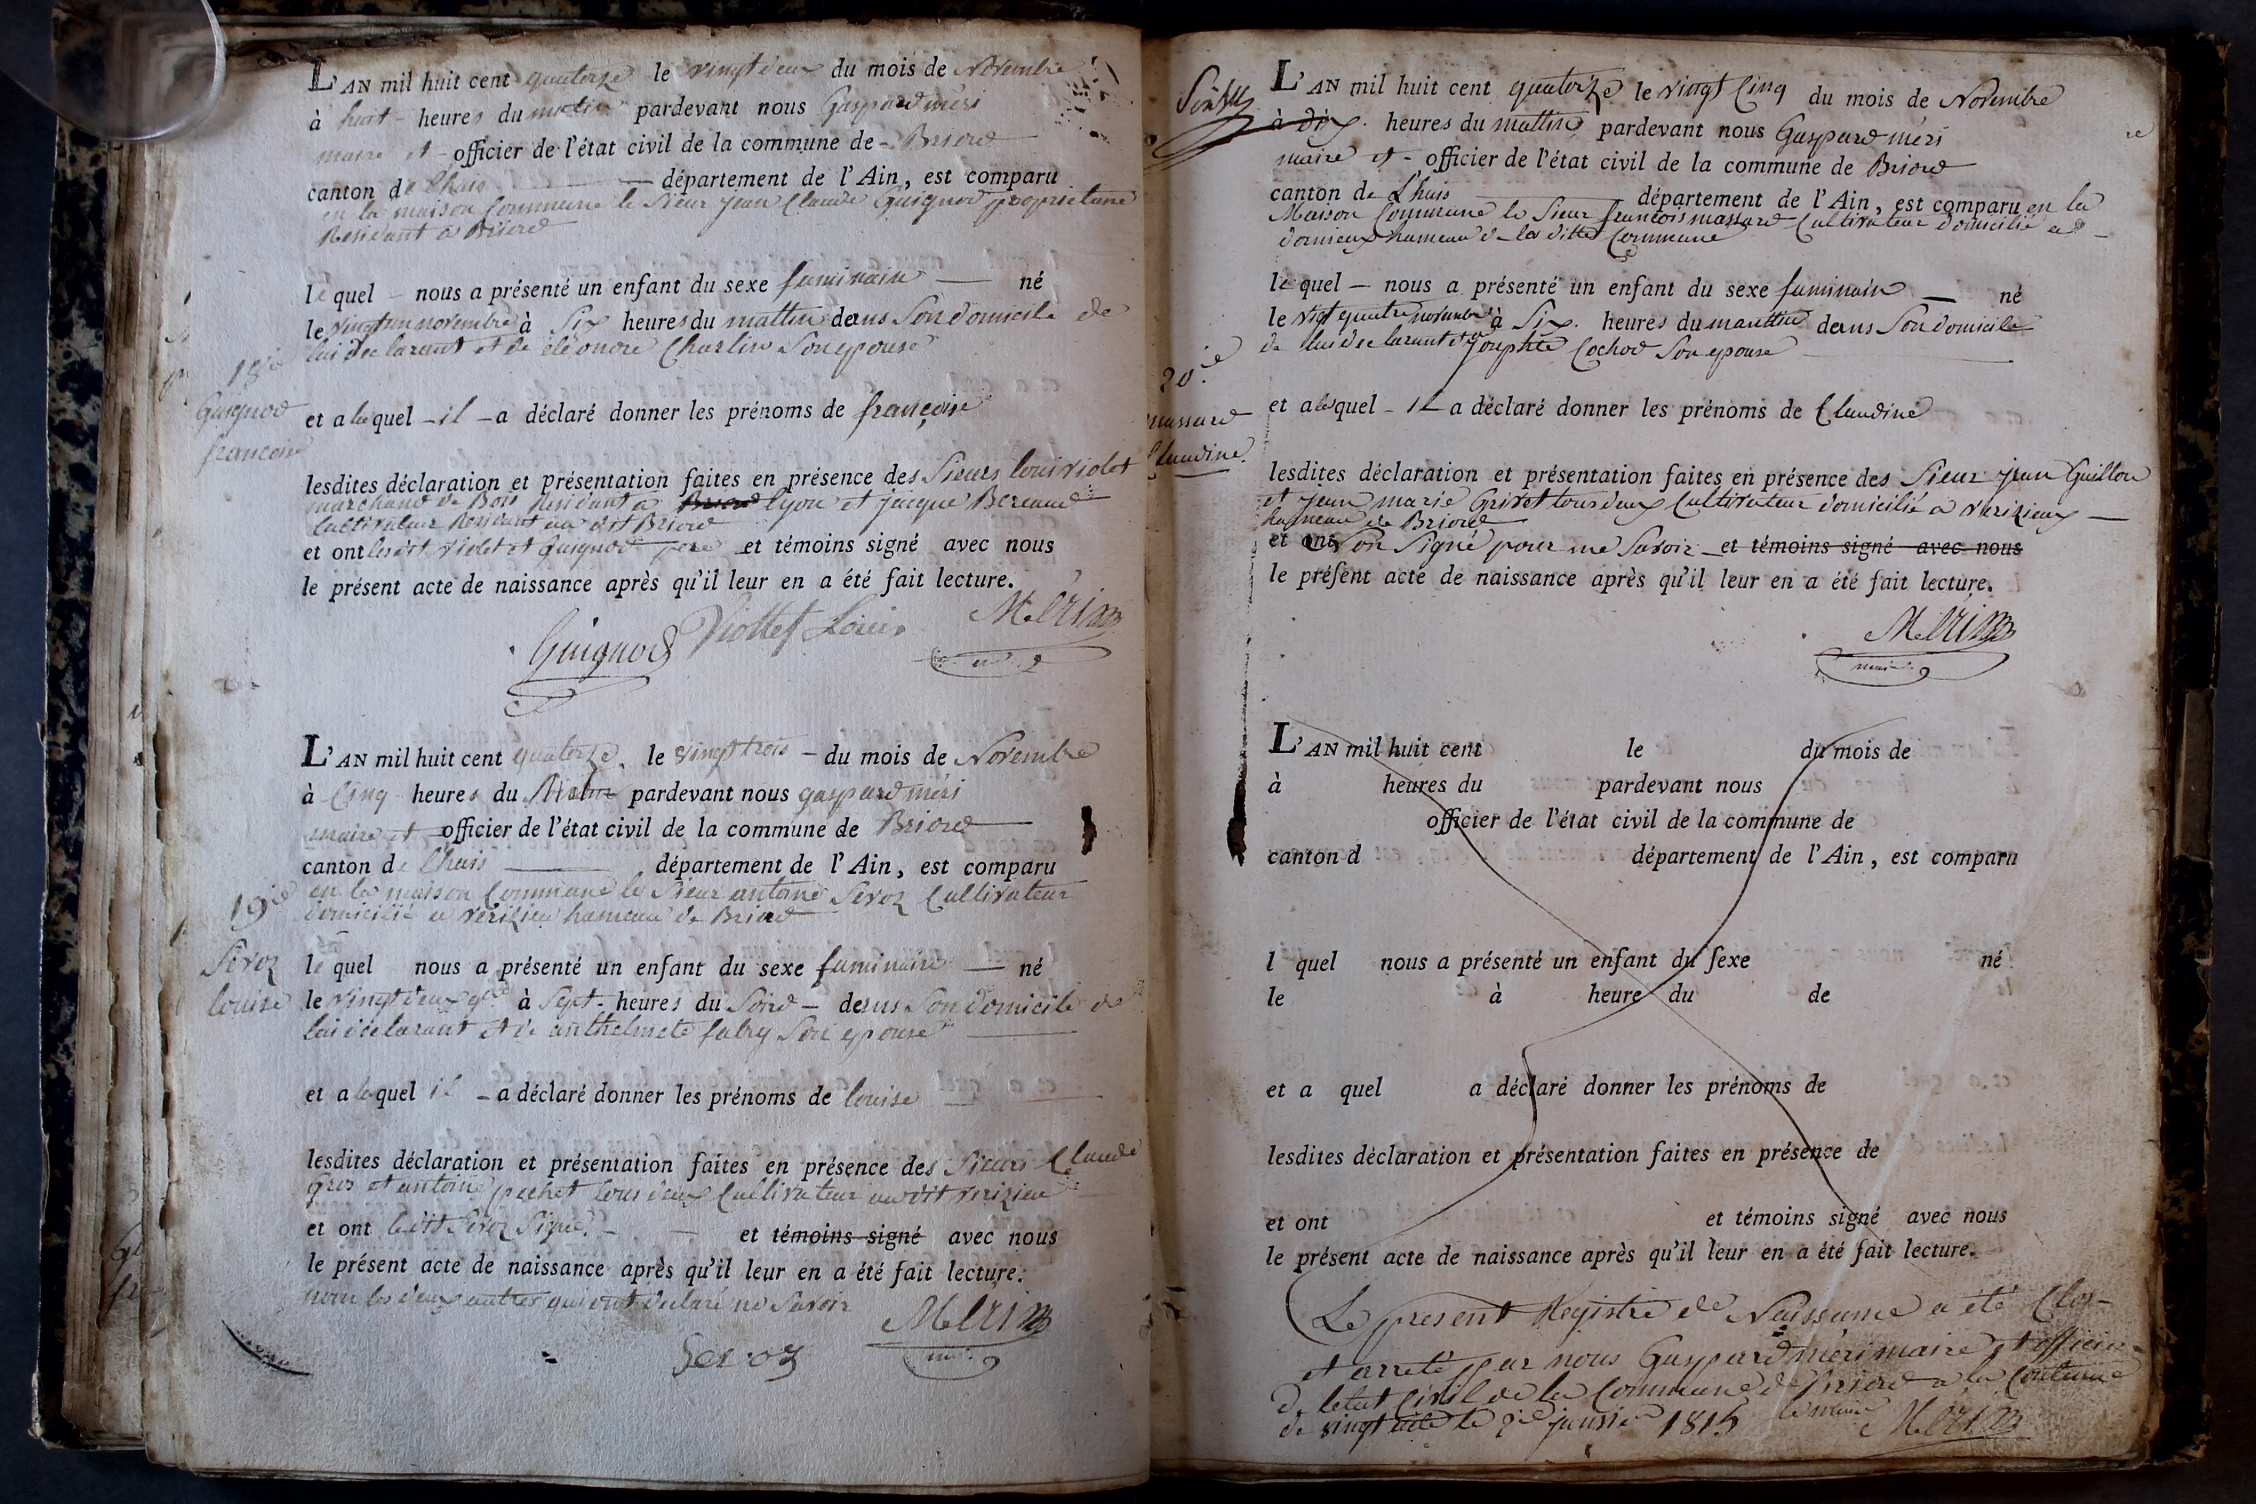 L'AN mil huit cent quatorze le vingt deux du mois de Novembre
à huit heures du matin pardevant nous Gaspard méri
maire et officier de l'état civil de la commune de Briord
canton de Lhuis département de l'Ain, est comparu
en la maison Commune le Sieur jean Claude Guignod proprietaire
Residant a Briord
le quel nous a présenté un enfant du sexe faminain né
le vingt un novembre à Six heures du mattin dans Son domicile de
lui declarant et de eléonore Charlin Son epouse
18e
Guignod
francoise
et a la quel il a déclaré donner les prénoms de françoise
lesdites déclaration et présentation faites en présence des Sieurs loui violet
marchand de Bois Residant a Briord lyon et jacque Bereaud
Cultivateur Residant au dit Briord
et ont lesdit violet et Guignod pere et témoins signé avec nous
le présent acte de naissance après qu'il leur en a été fait lecture.
Guignod Viollet Louis Méri m
L'AN mil huit cent quatorze, le vingt trois du mois de Novembre
à Cinq heures du Matin pardevant nous gaspard méri
maire et officier de l'état civil de la commune de Briord
canton de Lhuis département de l'Ain, est comparu
en la maison Commune le Sieur antoine Seroz Cultivateur
domicilié a vérizieu hameau de Briord
19e
Séroz
louise
le quel nous a présenté un enfant du sexe faminain né
le vingt deux 9bre à Sept heures du Soird dans Son domicile de
lui declarant et de anthelmete fabry Son epouse
et a la quel il a déclaré donner les prénoms de louise
lesdites déclaration et présentation faites en présence des Sieurs Claude
gros et antoine pechet tous deux Cultivateur au dit verizieu
et ont ledit Séroz Signé et témoins signé avec nous
le présent acte de naissance après qu'il leur en a été fait lecture.
nom les deux autres qui ont declaré ne Savoir
Seroz Méri m
L'AN mil huit cent quatorze le vingt Cinq du mois de Novembre
à dix heures du mattin pardevant nous Gaspard méri
maire et officier de l'état civil de la commune de Briord
canton de Lhuis département de l'Ain, est comparu en la
Maison Commune le Sieur francois massard Cultivateur domicilié a
dornieux hameau de la ditte Commune
le quel nous a présenté un enfant du sexe faminain né
le vigt quatre novembre à Six heures du mauttin dans Son domicile
de lui declarant et de josephte Cochod Son epouse
20e
massard
Claudine
et a la quel il a déclaré donner les prénoms de Claudine
lesdites déclaration et présentation faites en présence des Sieur jean Guillon
et jean marie Grivet tous deux Cultivateur domicilié a vérizieux
hameau de Briord
et ont Non Signé pour ne Savoir et témoins signé avec nous
le présent acte de naissance après qu'il leur en a été fait lecture.
Méri m
maire
L'AN mil huit cent le du mois de
à heures du pardevant nous
officier de l'état civil de la commune de
canton d département de l'Ain, est comparu
l quel nous a présenté un enfant du sexe né
le à heure du de
et a quel a déclaré donner les prénoms de
lesdites déclaration et présentation faites en présence de
et ont et témoins signé avec nous
le présent acte de naissance après qu'il leur en a été fait lecture.
Le present Registre de Naissance a été Clos
et arreté par nous Gaspard méri maire et officier
de letat Civil de la Commune de Briord a la Contenue
de vingt acte le 2e janvier 1815 le maire Méri m